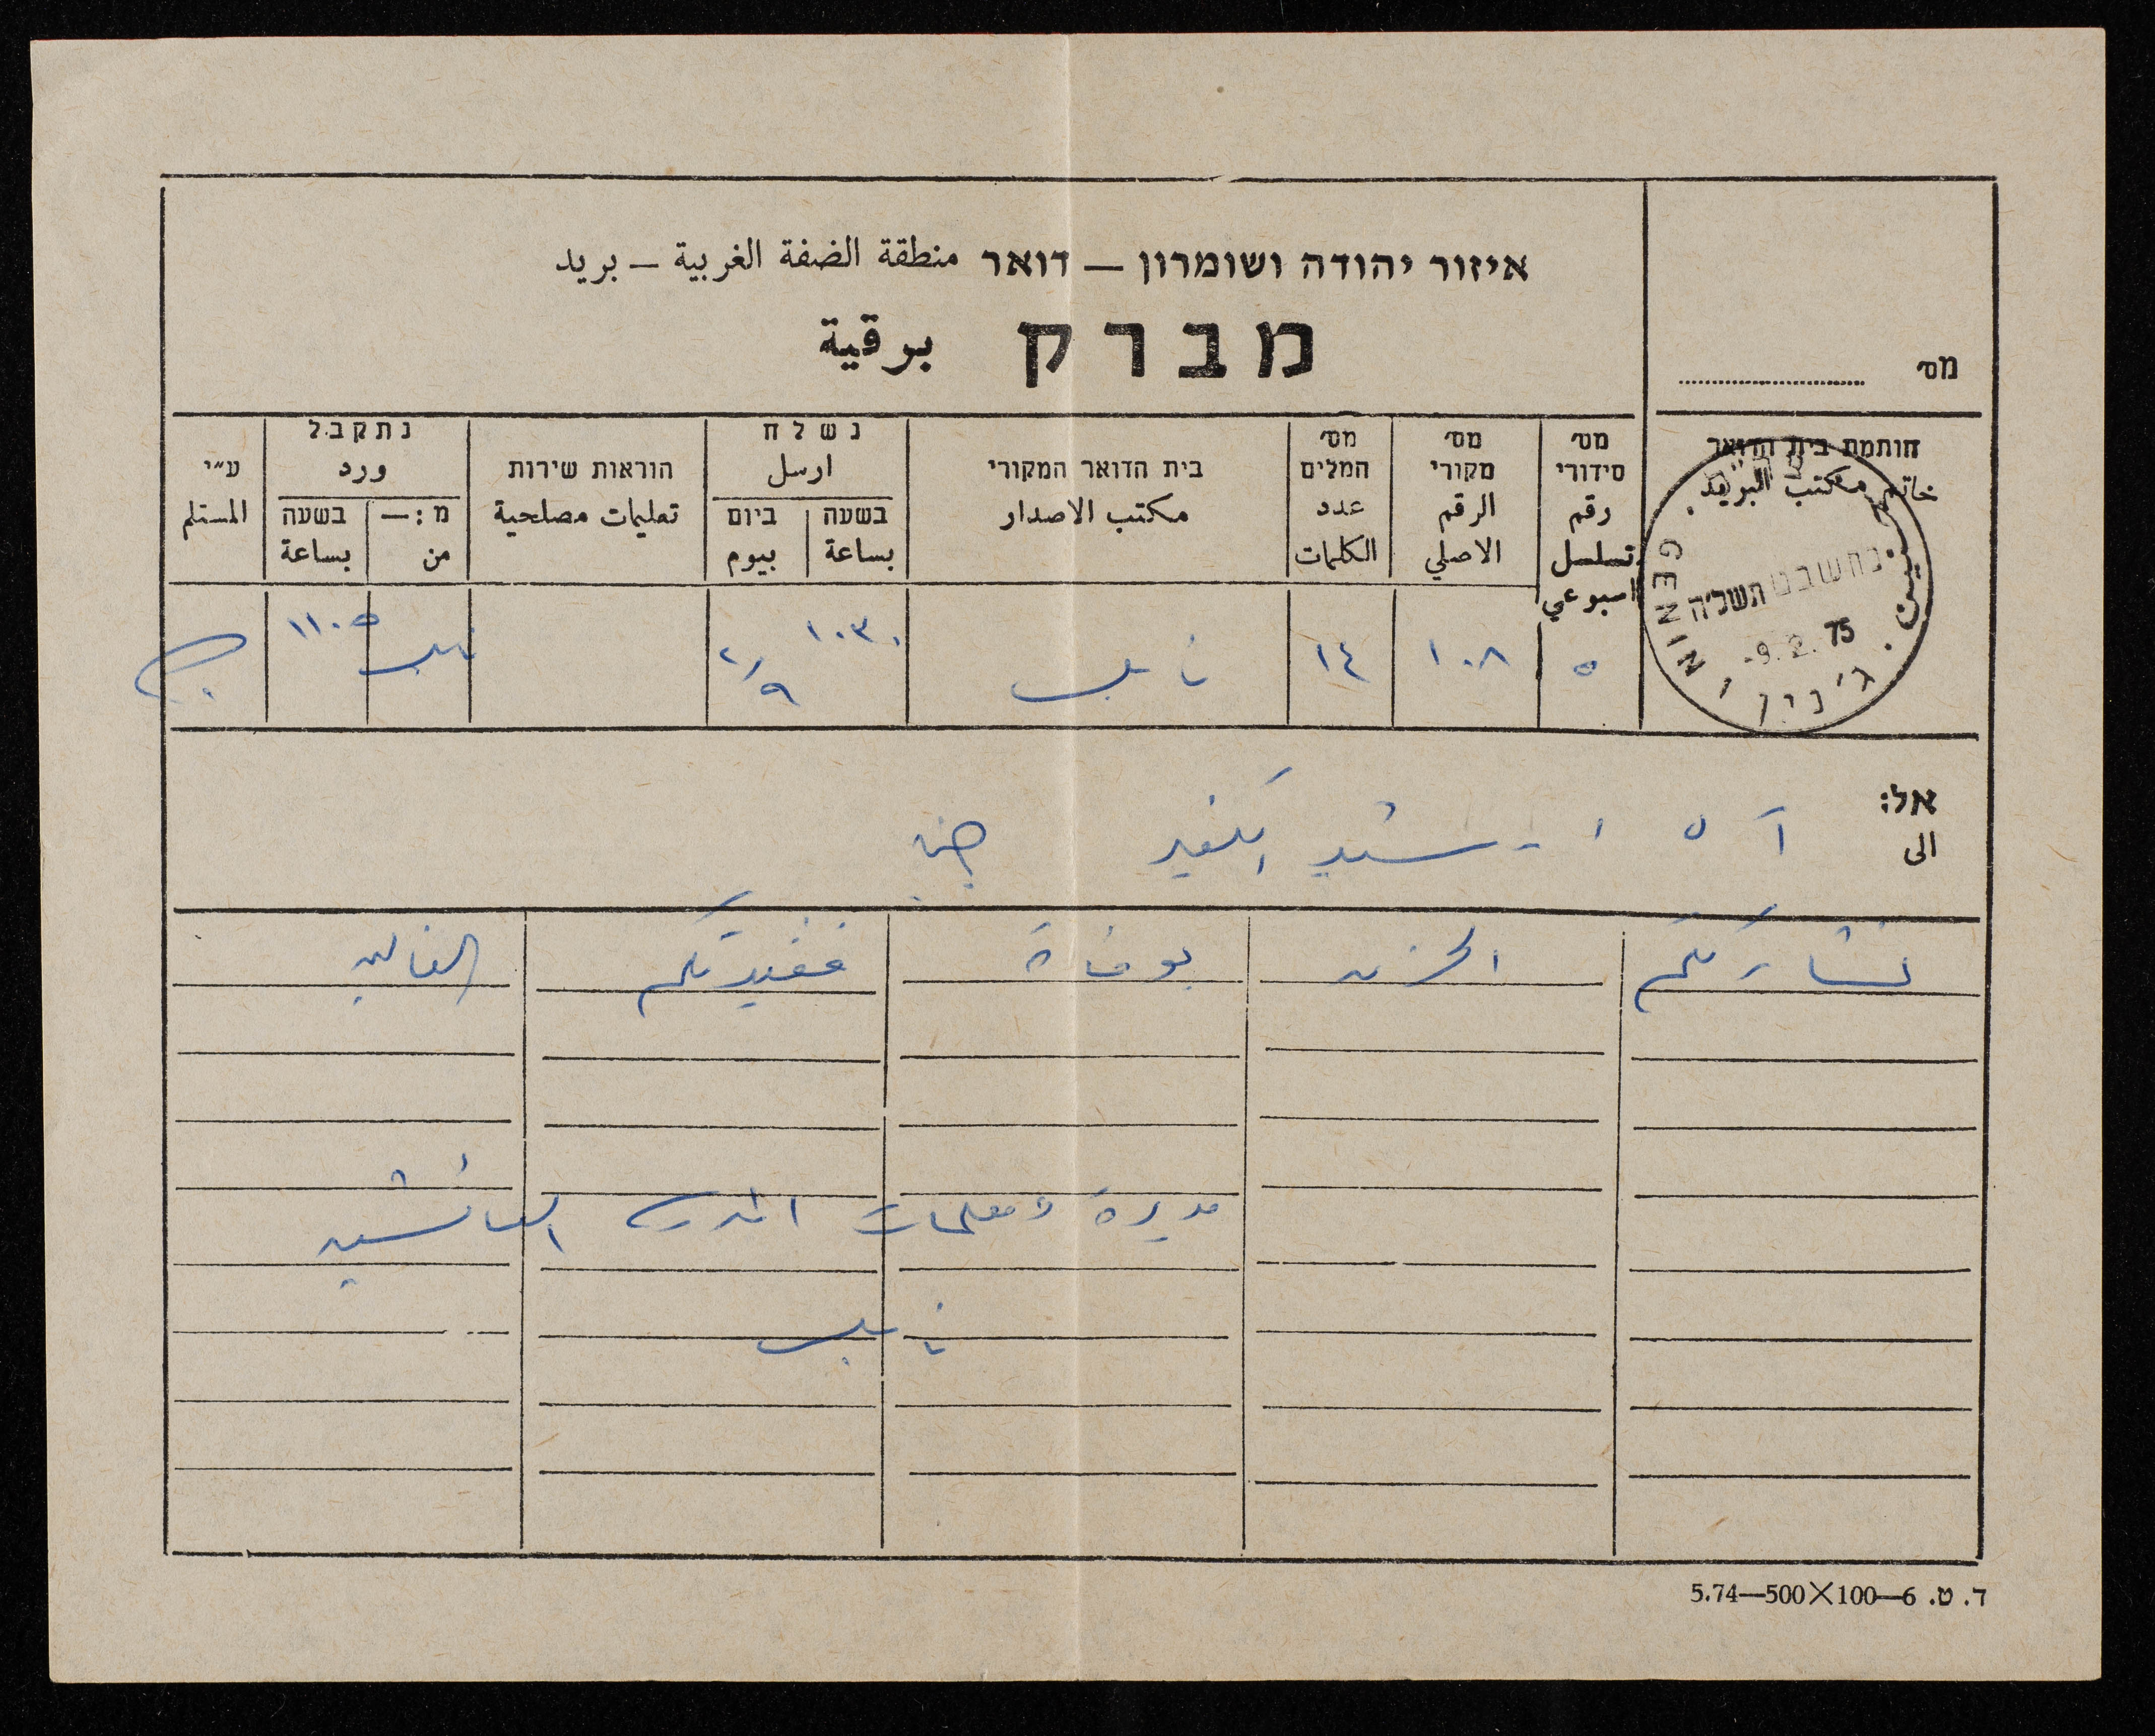 איזור יהודה ושומרון – דואר منطقة الضفة الغربية – بريد
מברק برقية
מס׳
חותמת בית הדואר
خاتم مكتب البريد
מס׳ סידורי رقم تسلسل اسبوعي
מס׳ מקורי الرقم الاصلي
מס׳ המלים عدد الكلمات
בית הדואר המקורי مكتب الاصدار
נשלח ارسل
בשעה بساعة
ביום بيوم
הוראות שירות تعليمات مصلحية
נתקבל ورد
מ:— من
בשעה بساعة
ע״י المستلم
GENIN
جنين
ג׳נין
תשל״ה
-9.2.75
٥
١٠٨
١٤
نابلس
١٠٣٠
٩/٢
نابلس
١١٠٥
אל:
الى
جنين
نشارككم الحزن بوفاة فقيدتكم الغالية
مديرة ومعلمات المدرسة العائشية
نابلس
ד. ט. 6—100×500—5.74